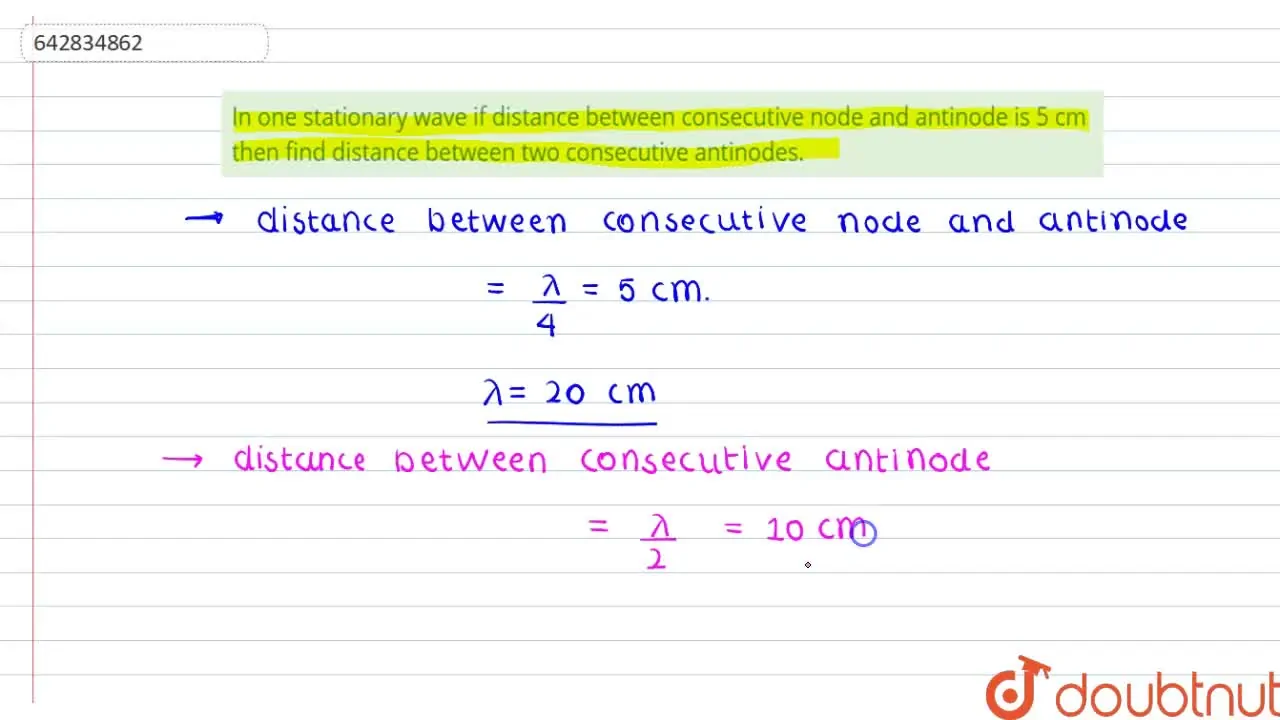 642834862
In one stationary wave if distance between consecutive node and antinode is 5 cm
then find distance between two consecutive antinodes.
→ distance between consecutive node and antinode
= λ/4 = 5 cm.
λ = 20 cm
→ distance between consecutive antinode
= λ/2 = 10 cm
doubtnut